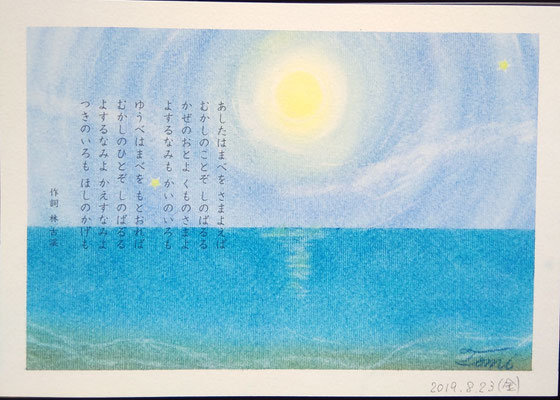 あしたはまべを さまよえば
むかしのことぞ しのばるる
かぜのおとよ くものさまよ
よするなみも かいのいろも
ゆうべはまべを もとおれば
むかしのひとぞ しのばるる
よするなみよ かえすなみよ
つきのいろも ほしのかげも
作詞 林古渓
Tomi
2019.8.23(金)